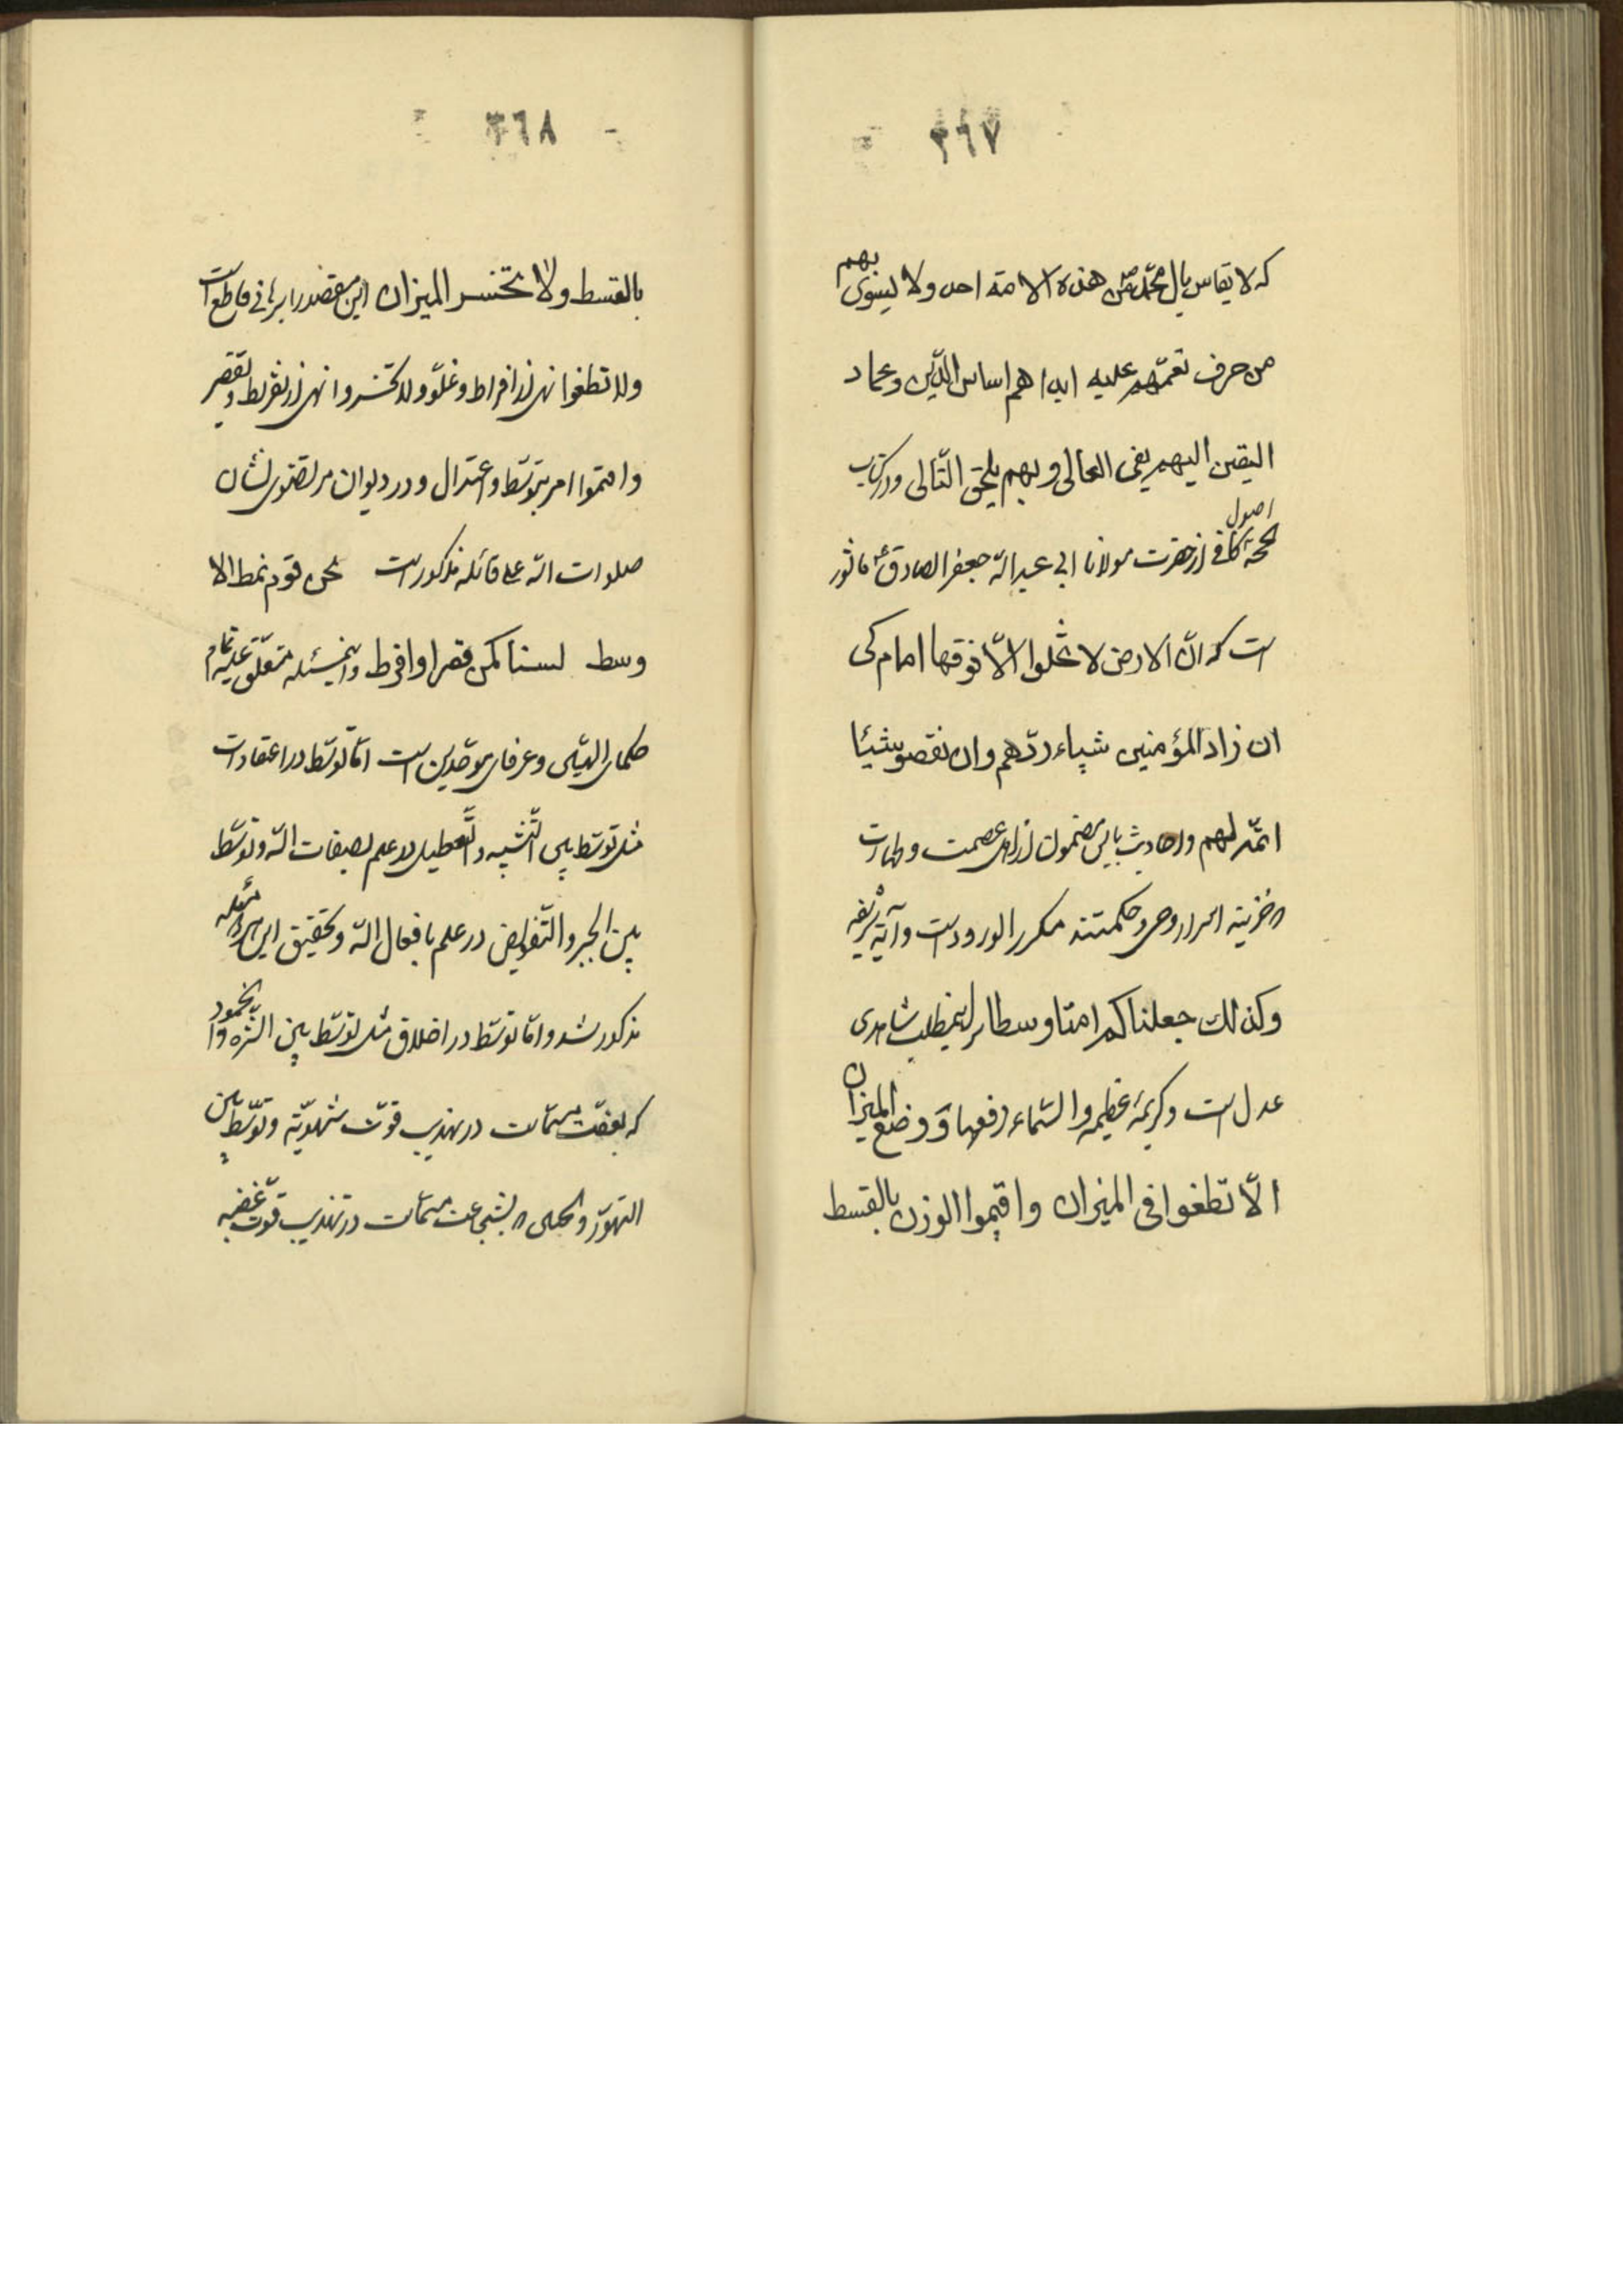 ٣٦٧
که لا یقاس بال محمد ص من هذه الامة احد ولا یسوی بهم
من جرت نعمتهم علیه ابدا هم اساس الدّین وعماد
الیقین الیهم یفی الغالی وبهم یلحق التّالی ودر کتاب
حجّة اصول کافی از حضرت مولانا ابی عبد الله جعفر الصادق ع ماثور
است که انّ الارض لا تخلوا الّا وفیها امام کی
ان زاد المؤمنین شیاء ردّهم وان نقصو شیئا
اتمّه لهم واحادیث باین مضمون از اهل عصمت وطهارت
که خزینه اسرار وحی وحکمتند مکرر الورود است وآیه شریفه
وکذلك جعلناکم امتا وسطا براین مطلب شاهدی
عدل است وکریمهٔ عظیمه والسّماء رفعها ووضع المیزان
الّا تطغوا فی المیزان واقیموا الوزن بالقسط
٣٦٨
بالقسط ولا تخسر المیزان این مقصد را برهانی قاطع است
ولا تطغوا نهی از افراط وغلوّ ولا تخسروا نهی از تفریط وتقصیر
واقیموا امر بتوسّط واعتدال ودر دیوان مرتضوی نشان
صلوات الله علی قائله مذکور است نحن قوم نمط الا
وسط لسنا کمن قصر او افرط واینمسئله متّفق علیه تمام
حکمای الهیّین وعرفای موحّدین است امّا توسّط در اعتقادات
مثل توسّط بین التّشبیه والتّعطیل در علم بصفات الله وتوسّط
بین الجبر والتّفویض در علم بافعال الله وتحقیق این هر دو مسئله
مذکور شد وامّا توسّط در اخلاق مثل توسّط بین الشّره والخمود
که بعفّت مسمّاست در تهذیب قوّت شهویّة وتوسّط بین
التهوّر والجبن که بشجاعت مسمّاست در تهذیب قوّت غضبیه